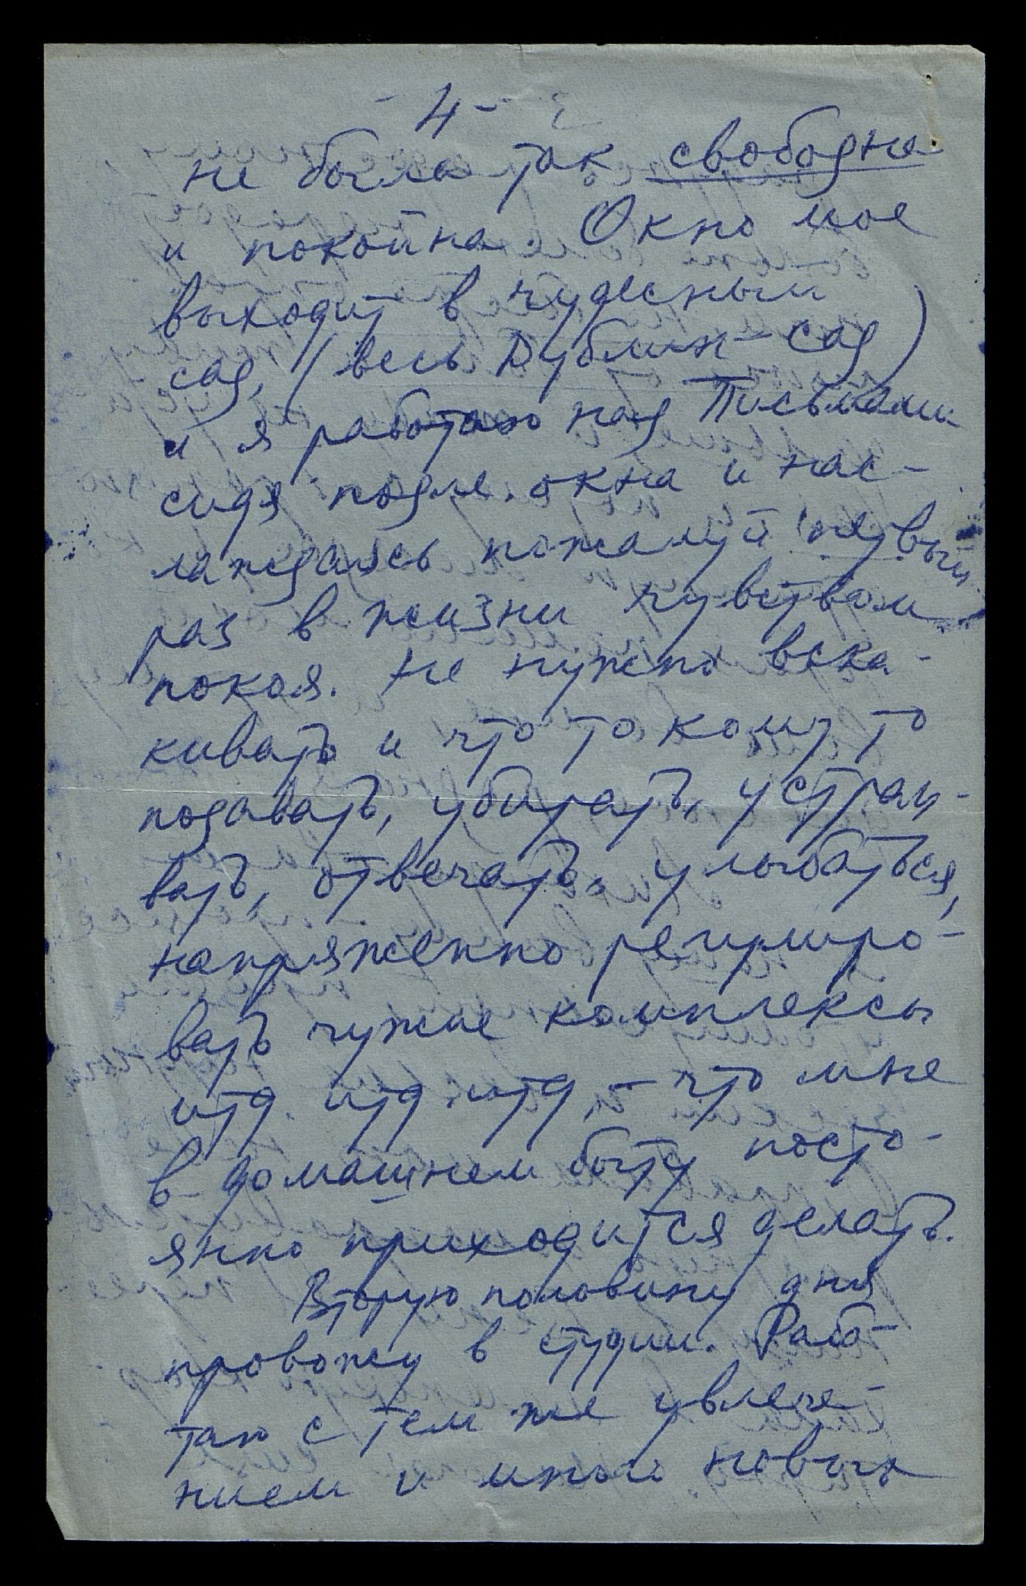 - 4 -
не была так свободна
и покойна. Окно мое
выходит в чудесный
сад, (весь Дублин - сад)
и я работаю над Письмами
сидя подле окна и нас-
лаждаясь пожалуй первый
раз в жизни чувством
покоя. Не нужно вска-
кивать и что то кому то
подавать, убирать, устраи-
вать, отвечать, улыбаться,
напряженно регулиро-
вать чужие комплексы
итд итд итд, - что мне
в домашнем быту посто-
янно приходится делать.
Вторую половину дня
провожу в студии. Рабо-
таю с тем же увлече-
нием и много новых